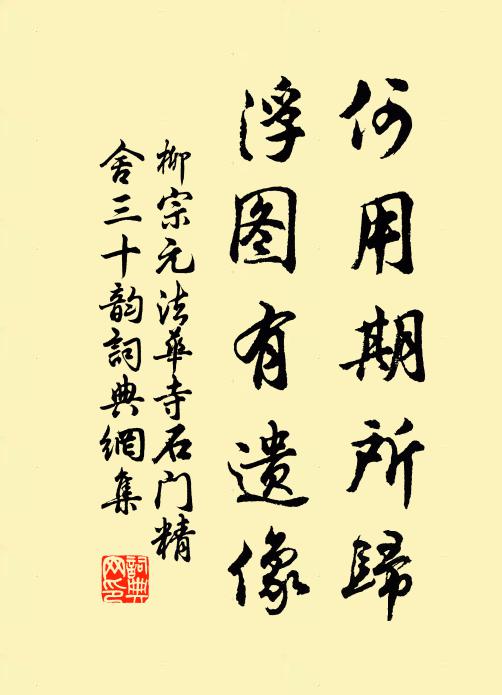 何用期所歸
浮图有遗像
柳宗元法華寺石门精
舍三十韵詞典網集
詞典
网印